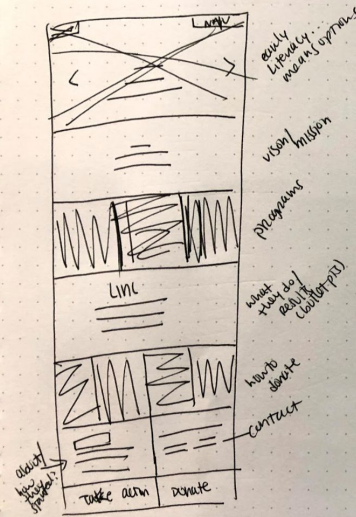 early
literacy...
means options
vison/mission
programs
LINC
what
they do/
results
(bullet pts)
how to
donate
contact
about/
how
they
started?
Take action
Donate